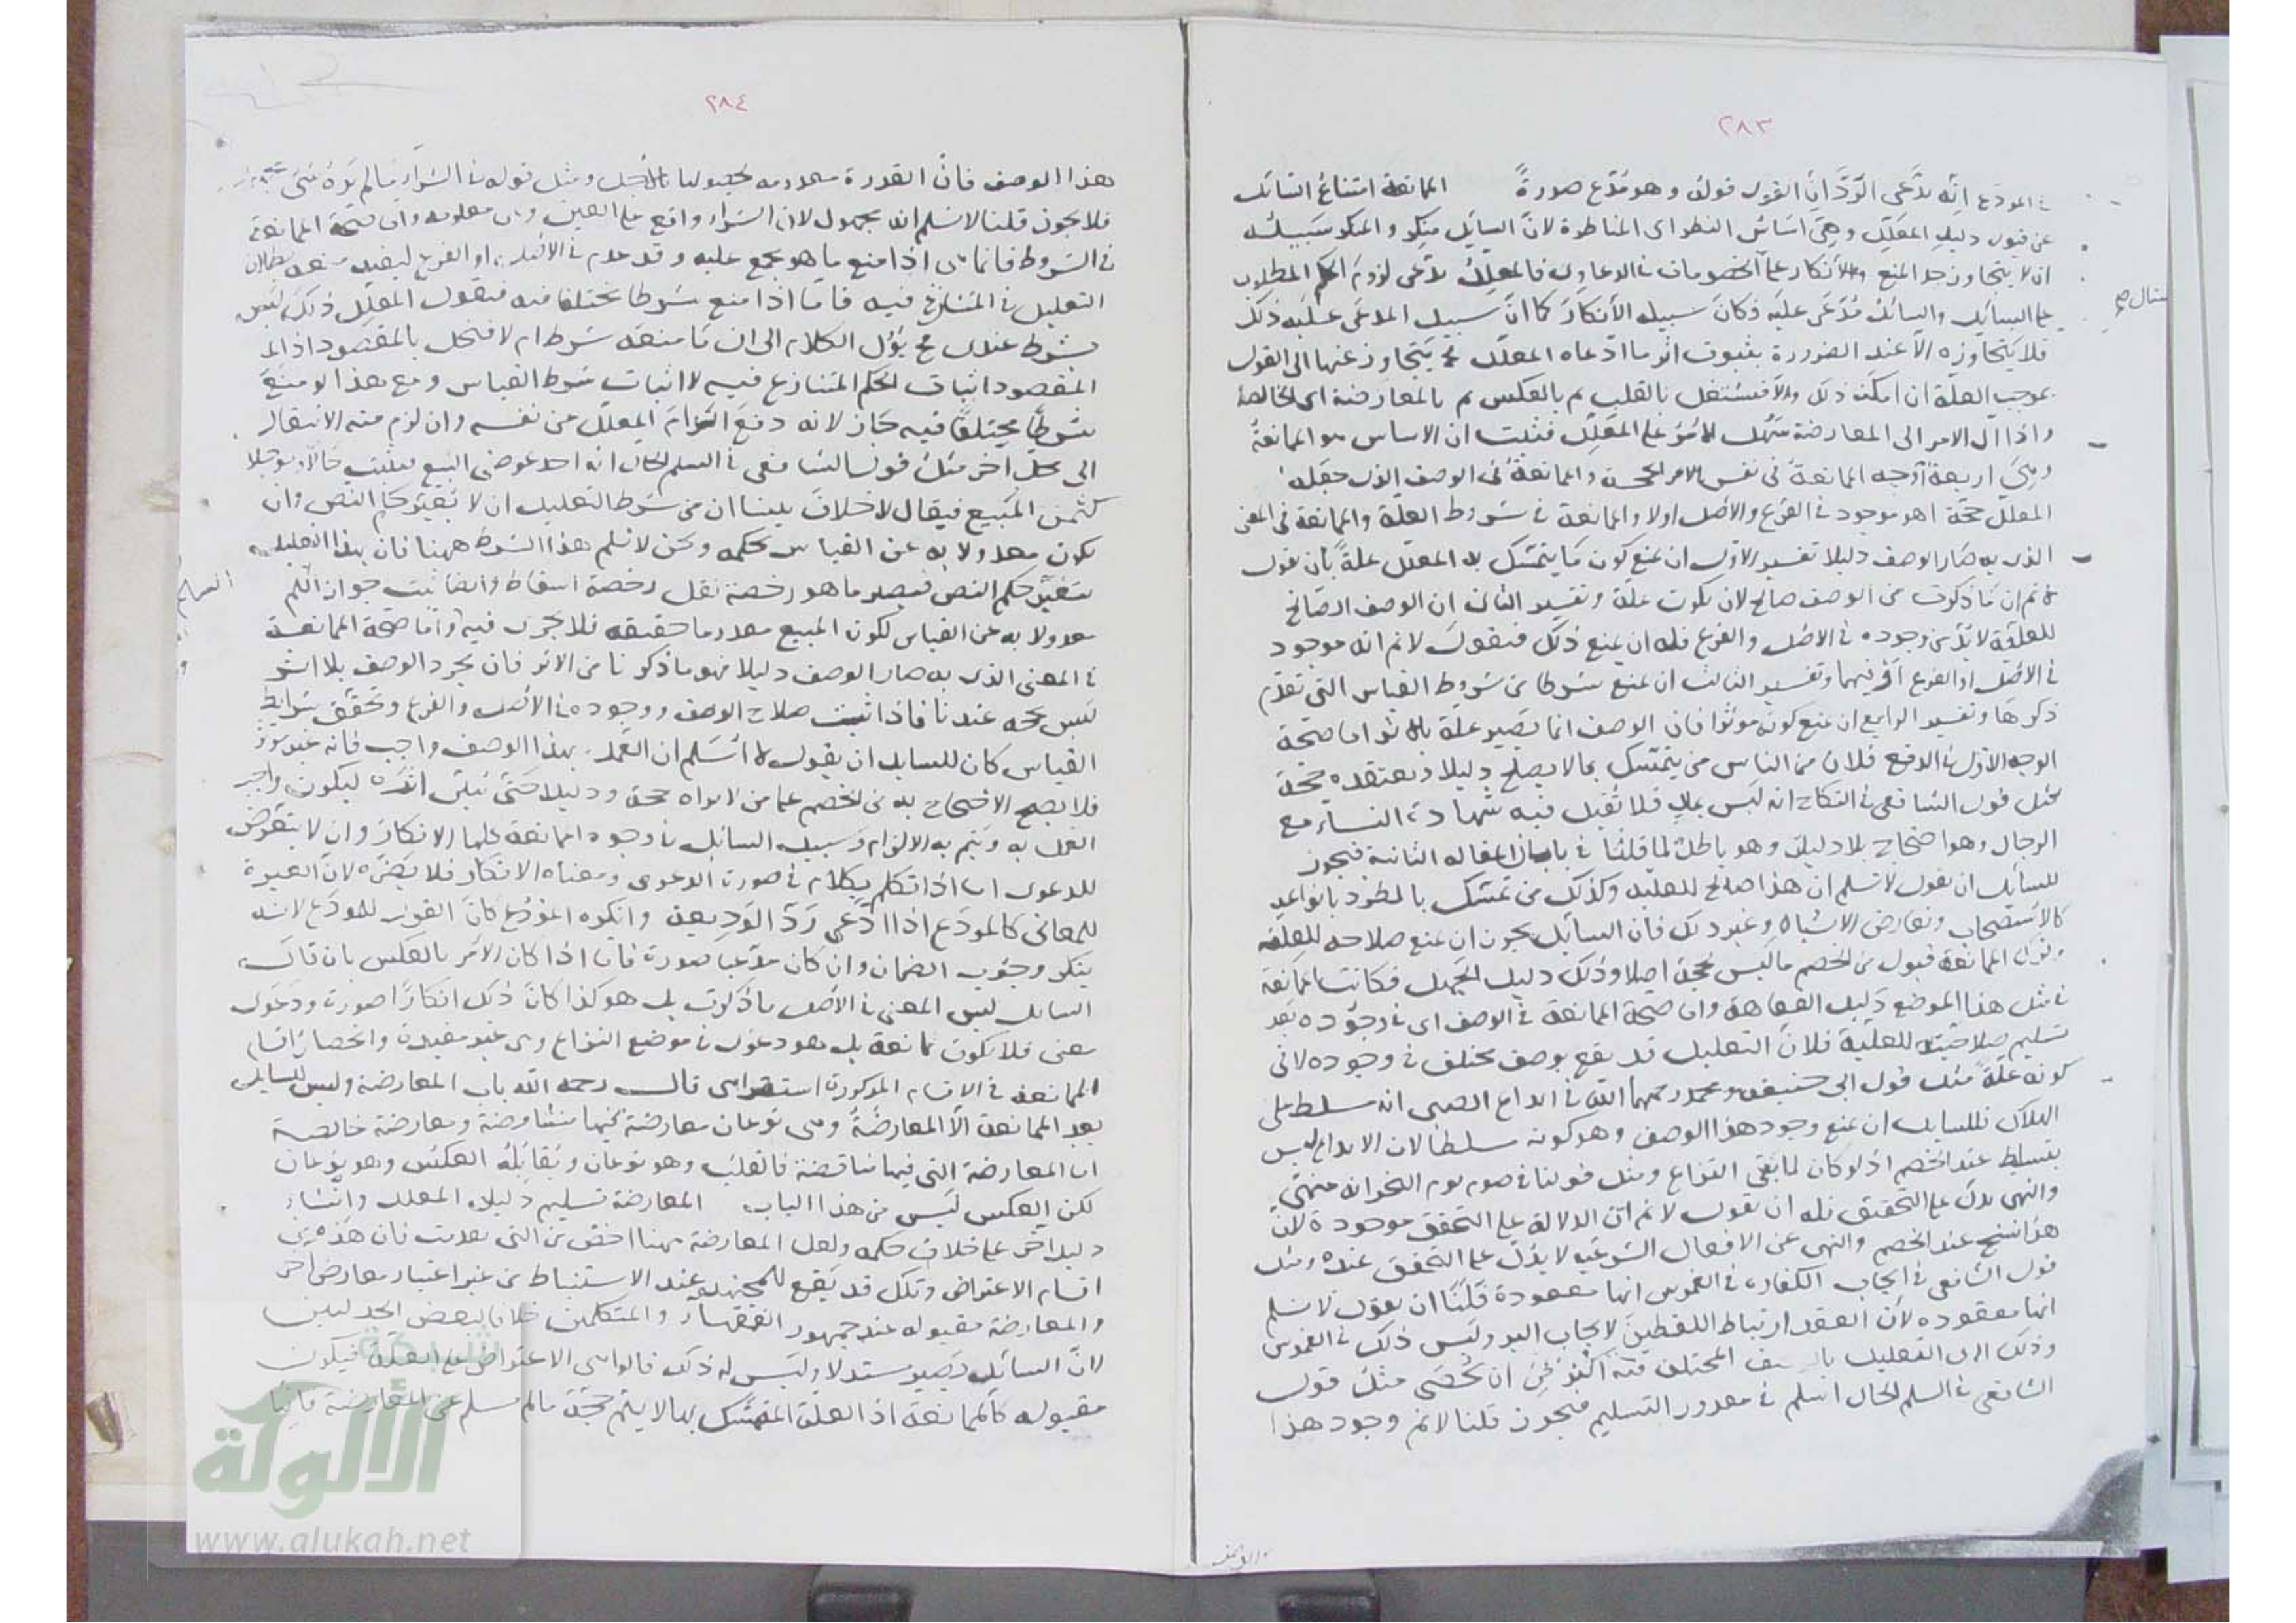 ٢٨٣
في المودع انه يدّعى الردّ ان القول قوله وهو مدّع صورةً الممانعة امتناع السائل
عن قبول دليل المعلّل وهى اساس النظر اى المناظرة لانّ السايل منكر والمنكر سبيله
ان لا يتجاوز حد المنع والانكار على الخصومات في الدعاوى فالمعلل يدّعى لزوم الحكم المطلوب
على السايل والسائل مدّعى عليه فكان سبيله الانكار كما انّ سبيل المدعى عليه ذلك
فلا يتجاوزه الا عند الضرورة بثبوت اثر ما ادّعاه المعلل ثم يتجاوز عنها الى القول
بموجب العلّة ان امكنه ذلك والا فيشتغل بالقلب ثم بالعكس ثم بالمعارضة اى الخالصة
واذا آل الامر الى المعارضة سهل الامر على المعلّل فثبت ان الاساس هو الممانعة
وهى اربعة اوجه الممانعة في نفس الامر الحجة والممانعة في الوصف الذى جعله
المعلل حجّة اهو موجود في الفرع والاصل اولا والممانعة في شروط العلّة والممانعة في المعنى
الذى به صار الوصف دليلا تفسير الاول ان يمنع كون ما يتمسّك به المعلل علةً بان يقول
لا نم ان ما ذكرت من الوصف صالح لان يكون علة وتفسير الثانى ان الوصف الصالح
للعلّية لا بدّ من وجوده في الاصل والفرع فله ان يمنع ذلك فيقول لا نم انه موجود
في الاصل او الفرع او فيهما وتفسير الثالث ان يمنع شرطا من شروط القياس التى تقدّم
ذكرها وتفسير الرابع ان يمنع كونه موثرا فان الوصف انما يصير علة بالاثر اما صحّة
الوجه الاول في الدفع فلان من الناس من يتمسّك بما لا يصلح دليلا ويعتقده حجّة
مثل قول الشافعى في النكاح انه ليس بمال فلا تقبل فيه شهادة النساء مع
الرجال وهو احتجاج بلا دليل وهو باطل لما قلنا في المقاله الثانية فيجوز
للسايل ان يقول لا نسلم ان هذا صالح للعليه وكذلك من تمسّك بالطرد بانواعه
كالاستصحاب وتعارض الاشباه وغير ذلك فان السائل يجوز ان يمنع صلاحه للعليّه
وترك الممانعة قبول من الخصم ما ليس بحجة اصلا وذلك دليل الجهل فكانت الممانعة
في مثل هذا الموضع دليل الفقاهة واما صحّة الممانعة في الوصف اى في وجوده بعد
تسليم صلاحيّته للعليّة فلانّ التعليل قد يقع بوصف مختلف في وجوده لا في
كونه علّة مثل قول ابى حنيفه ومحمد رحمهما الله في ايداع الصبى انه مسلط على
الهلاك فللسايل ان يمنع وجود هذا الوصف وهو كونه مسلطا لان الايداع ليس
بتسليط عند الخصم اذ لو كان لما بقى النزاع ومثل قولنا في صوم يوم النحر انه منهىّ
والنهى يدلّ على التحقيق فله ان يقول لا نم انّ الدلالة على التحقق موجودة لانّ
هذا نسخ عند الخصم والنهى عن الافعال الشرعيه لا يدلّ على التحقق عنده ومثل
قول الشافعى في ايجاب الكفاره في الغموس انها معقودة قلنا ان يقول لا نسلم
انها معقوده لانّ العقد ارتباط اللفظين لايجاب البر وليس ذلك في الغموس
وذلك اى التعليل بالوصف المختلف فيه اكثر من ان يحصى مثل قول
الشافعى في السلم الحال اسلم في مقدور التسليم فيجوز قلنا لا نم وجود هذا
هذا الوصف
٢٨٤
هذا الوصف فانّ القدرة معدومه بحصولها بالاجل ومثل قوله في الشراء ما لم يره
فلا يجوز قلنا لا نسلم انه مجهول لان الشراء واقع على العين وهى معلومه واما صحّة الممانعة
في الشروط فانما هى اذا منع ما هو مجمع عليه وقد عدم في الاصل او الفرع ليفيد منعه بطلان
التعليل في المتنازع فيه فامّا اذا منع شرطا مختلفا فيه فيقول المعلّل ذلك ليس
بشرط عندى ثم يؤل الكلام الى ان ما منعه شرط ام لا فيخل بالمقصود اذ
المقصود اثبات الحكم المتنازع فيه لا اثبات شرط القياس ومع هذا لو منع
شرطا مختلفا فيه جاز لانه دفع التزام المعلل عن نفسه وان لزم منه الانتقال
الى محل اخر مثل قول الشافعى في السلم الحال انه احد عوضى البيع فيثبت حالا ومؤجلا
كثمن المبيع فيقال لا خلاف بيننا ان من شرط التعليل ان لا يتغير حكم النص وان
يكون معدولا به عن القياس بحكمه ونحن لا نسلم هذا الشرط ههنا فان بهذا التعليل
يتغيّر حكم النص فيصير ما هو رخصة نقل رخصة اسقاط وايضا ثبت جواز السلم
معدولا به عن القياس لكون المبيع معدوما حقيقه فلا يجرى فيه واما صحّة الممانعة
في المعنى الذى به صار الوصف دليلا فهو ما ذكرنا من الاثر فان مجرد الوصف بلا اثر
ليس بحجه عندنا فاذا ثبت صلاح الوصف ووجوده في الاصل والفرع وتحقق شرايط
القياس كان للسايل ان يقول لا اسلم ان العمل بهذا الوصف واجب فانه غير موثر
فلا يصح الاحتجاج به من الخصم على من لا يراه حجة ودليلا حتى يبيّن اثره ليكون واجب
العمل به ويتم به الالزام وسبيل السائل في وجوه الممانعة كلها الانكار وان لا يتعرّض
للدعوى اما اذا تكلم بكلام في صورة الدعوى ومعناه الانكار فلا يضرّه لانّ العبرة
للمعانى كالمودع اذا ادّعى ردّ الوديعة وانكره المودع كان القول للمودع لانه
ينكر وجوب الضمان وان كان مدّعيا صورة فاما اذا كان الامر بالعكس بان قال
السايل ليس المعنى في الاصل ما ذكرت بل هو كذا كان ذلك انكارًا صورة ودعوى
معنى فلا يكون ممانعة بل هو دعوى في موضع النزاع وهى غير مفيدة وانحصار اقسام
الممانعة في الاقسام المذكورة استقراى قال رحمه الله باب المعارضة وليس للسايل
بعد الممانعة الّا المعارضة وهى نوعان معارضة فيها مناقضة ومعارضة خالصة
اما المعارضة التى فيها مناقضة فالقلب وهو نوعان ويقابله العكس وهو نوعان
لكن العكس ليس من هذا الباب المعارضة تسليم دليل المعلل وانشاء
دليل اخر على خلاف حكمه ولعل المعارضة ههنا اخصّ من التى تقدمت فان هذه من
اقسام الاعتراض وتلك قد يقع للمجتهد عند الاستنباط من غير اعتبار معارض اخر
والمعارضة مقبوله عند جمهور الفقهاء والمتكلمين خلافا لبعض الجدليين
لانّ السائل يصير مستدلا وليس له ذلك قالوا هى الاعتراض على العلة فيكون
مقبوله كالممانعة اذ العلة المتمسّك بها لا يتم حجّة ما لم تسلم عن المعارضة
شبكة
الألوكة
www.alukah.net